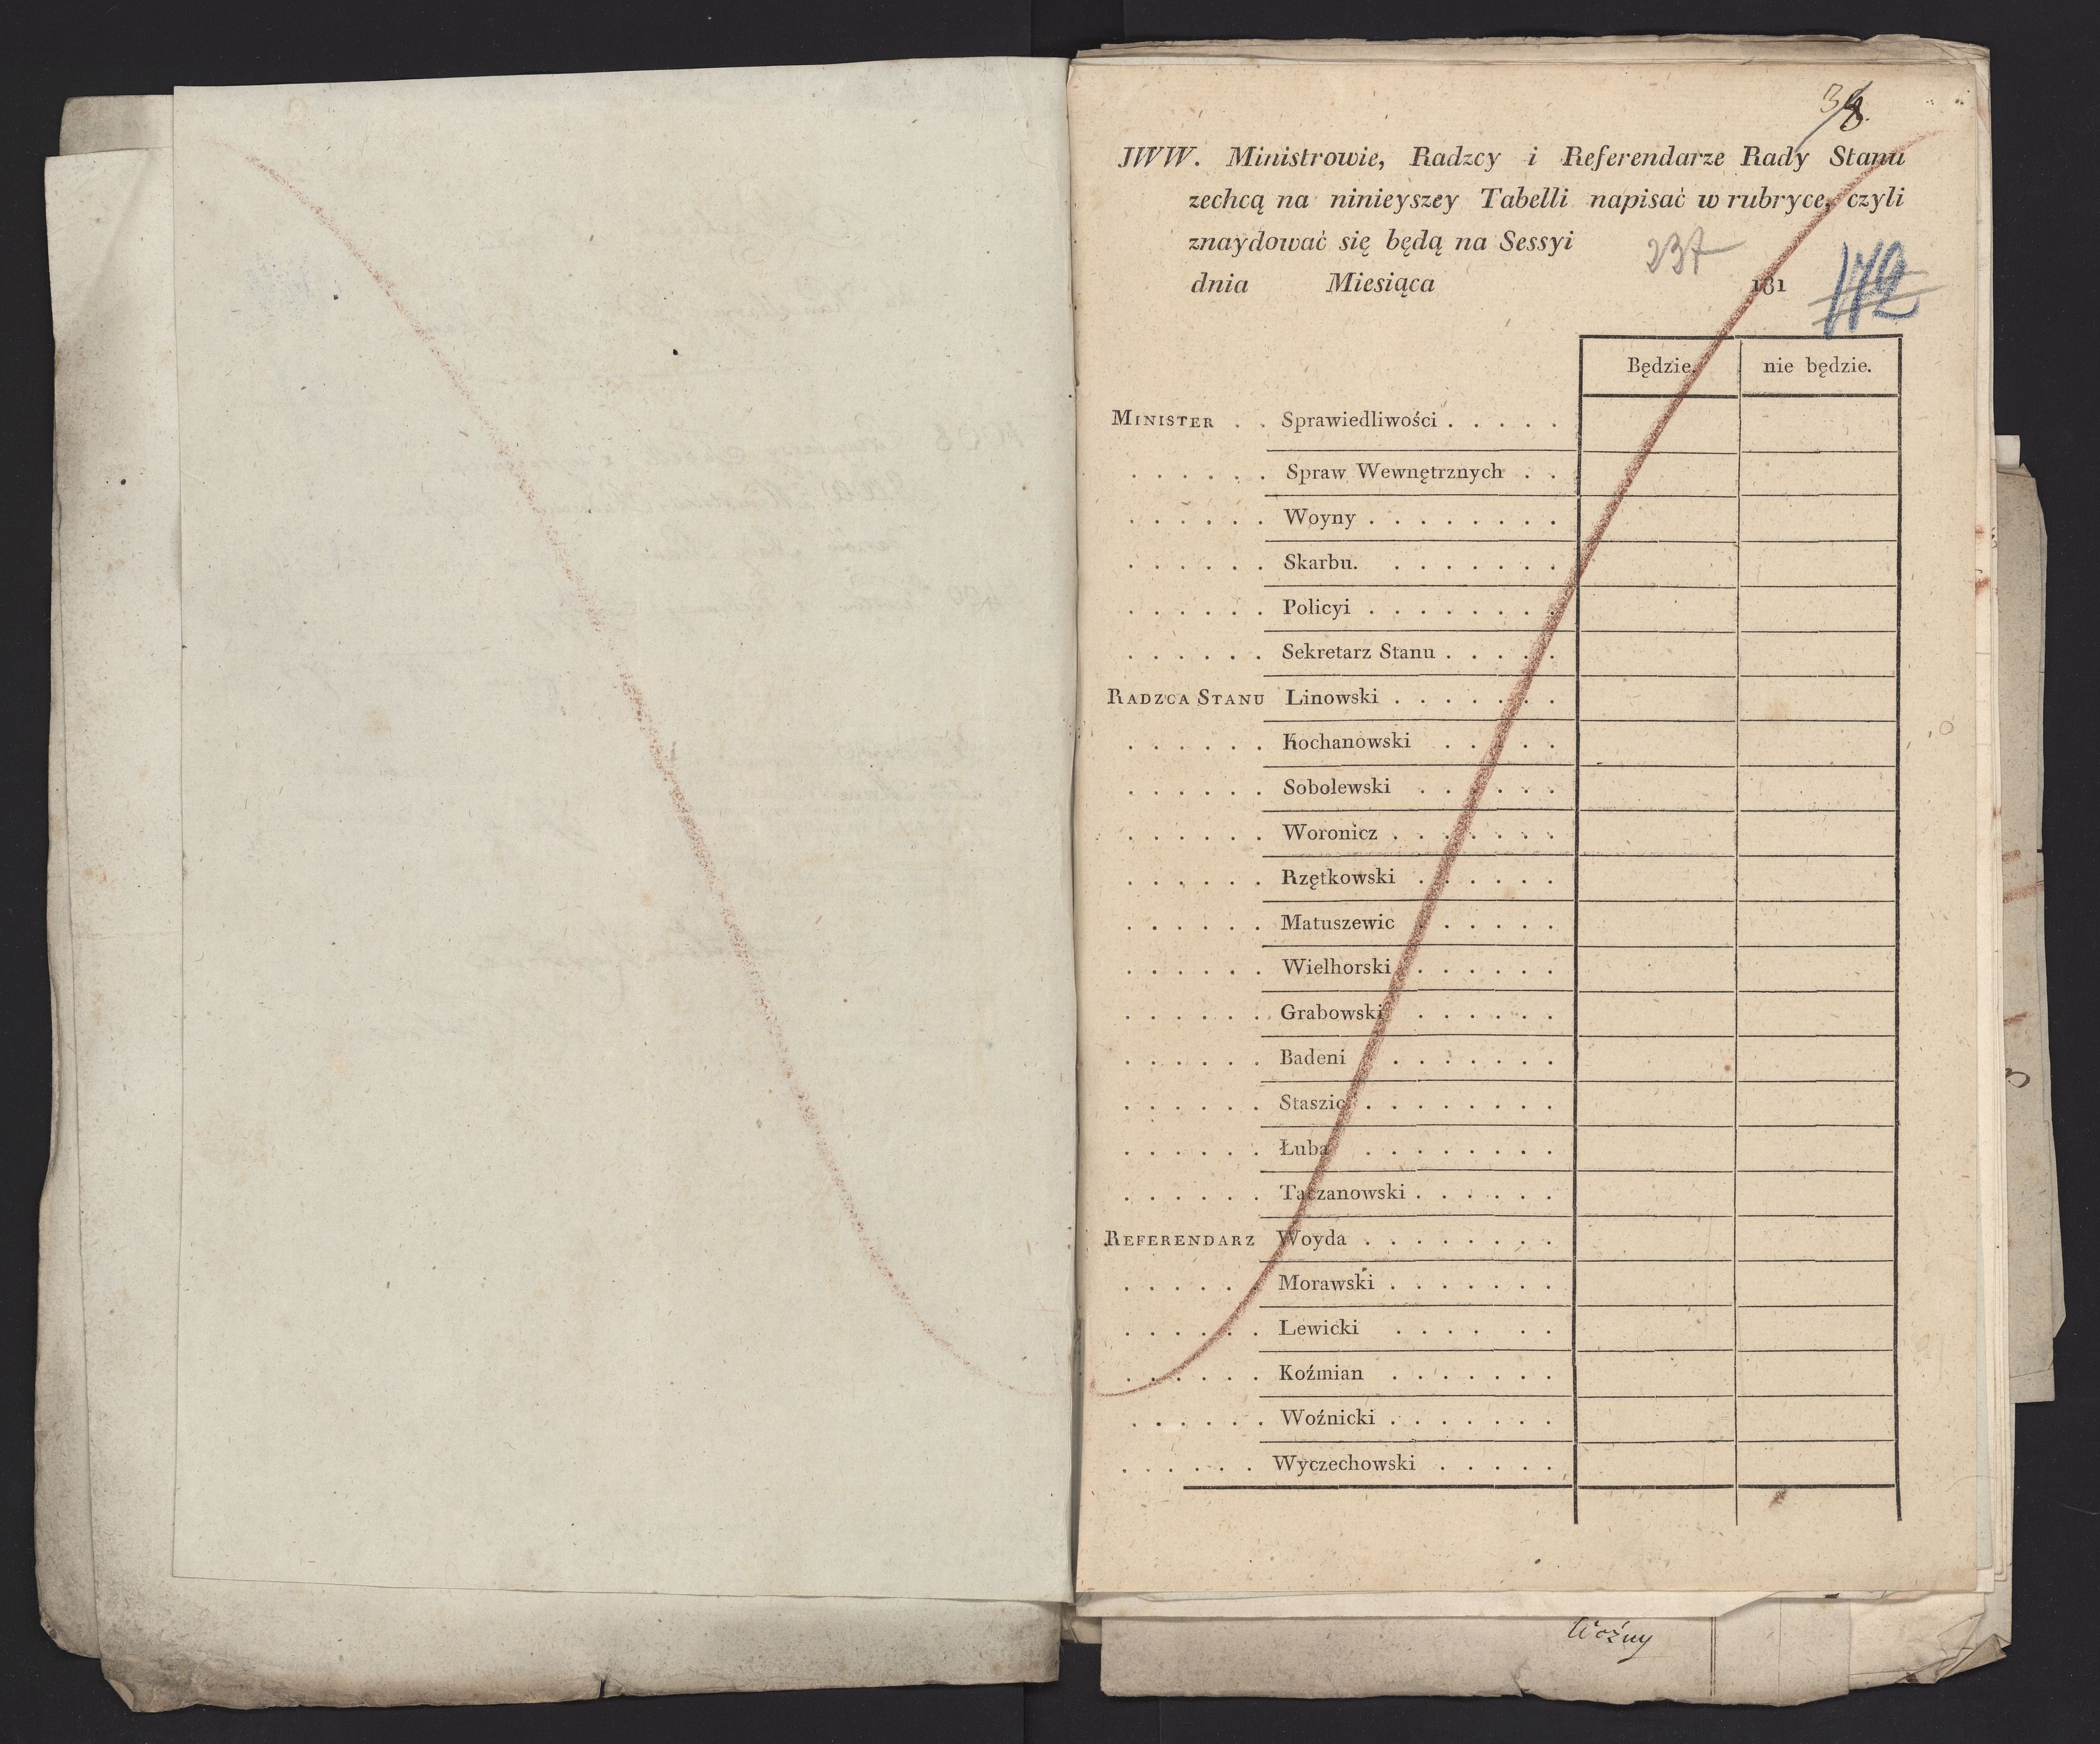 JWW. Ministrowie, Radzcy i Referendarze Rady Stanu
zechcą na ninieyszey Tabelli napisać w rubryce, czyli
znaydować się będą na Sessyi
237
dnia Miesiąca 181
172
Będzie. nie będzie.
MINISTER . . Sprawiedliwości . . . . .
. . . . . . Spraw Wewnętrznych . .
. . . . . . Woyny . . . . . . . .
. . . . . . Skarbu. . . . . . . .
. . . . . . Policyi . . . . . . . .
. . . . . . Sekretarz Stanu . . . . .
RADZCA STANU Linowski . . . . . . .
. . . . . . Kochanowski . . . . .
. . . . . . Sobolewski . . . . . .
. . . . . . Woronicz . . . . . . .
. . . . . . Rzętkowski . . . . . .
. . . . . . Matuszewic . . . . . .
. . . . . . Wielhorski . . . . . .
. . . . . . Grabowski . . . . . .
. . . . . . Badeni . . . . . . .
. . . . . . Staszic . . . . . . . .
. . . . . . Łuba . . . . . . . .
. . . . . . Taczanowski . . . . . .
REFERENDARZ Woyda . . . . . . . .
. . . . . . Morawski . . . . . . .
. . . . . . Lewicki . . . . . .
. . . . . . Koźmian . . . . . . .
. . . . . . Woźnicki . . . . . . .
. . . . . . Wyczechowski . . . . .
Woźny